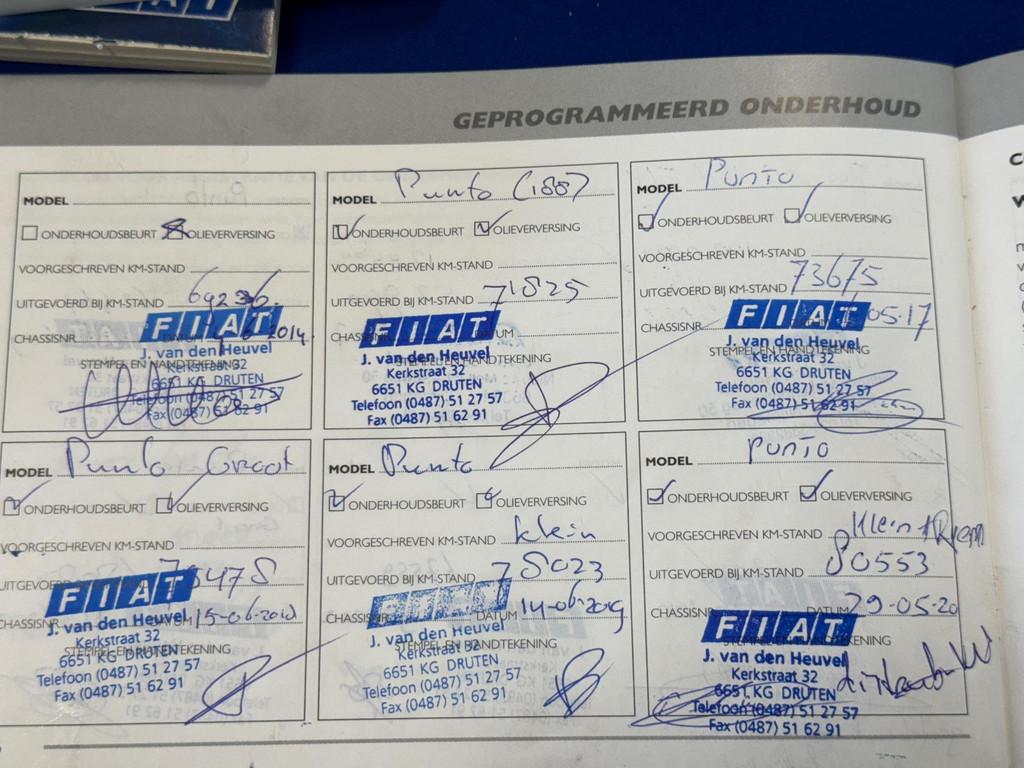 FIAT
GEPROGRAMMEERD ONDERHOUD
MODEL
ONDERHOUDSBEURT OLIEVERVERSING
VOORGESCHREVEN KM-STAND
UITGEVOERD BIJ KM-STAND 69236
CHASSISNR. 2014
FIAT
STEMPEL EN HANDTEKENING
J. van den Heuvel
Kerkstraat 32
6651 KG DRUTEN
Telefoon (0487) 51 27 57
Fax (0487) 51 62 91
MODEL Punto (188)
ONDERHOUDSBEURT OLIEVERVERSING
VOORGESCHREVEN KM-STAND
UITGEVOERD BIJ KM-STAND 71825
CHASSISNR. DATUM
FIAT
STEMPEL EN HANDTEKENING
J. van den Heuvel
Kerkstraat 32
6651 KG DRUTEN
Telefoon (0487) 51 27 57
Fax (0487) 51 62 91
MODEL Punto
ONDERHOUDSBEURT OLIEVERVERSING
VOORGESCHREVEN KM-STAND
UITGEVOERD BIJ KM-STAND 73675
CHASSISNR. 05.17
FIAT
STEMPEL EN HANDTEKENING
J. van den Heuvel
Kerkstraat 32
6651 KG DRUTEN
Telefoon (0487) 51 27 57
Fax (0487) 51 62 91
MODEL Punto Groot
ONDERHOUDSBEURT OLIEVERVERSING
VOORGESCHREVEN KM-STAND
UITGEVOERD
CHASSISNR. 15-06-2018
FIAT
STEMPEL EN HANDTEKENING
J. van den Heuvel
Kerkstraat 32
6651 KG DRUTEN
Telefoon (0487) 51 27 57
Fax (0487) 51 62 91
MODEL Punto
ONDERHOUDSBEURT OLIEVERVERSING
VOORGESCHREVEN KM-STAND klein
UITGEVOERD BIJ KM-STAND 78023
CHASSISNR. DATUM 14-06-2019
FIAT
STEMPEL EN HANDTEKENING
J. van den Heuvel
Kerkstraat 32
6651 KG DRUTEN
Telefoon (0487) 51 27 57
Fax (0487) 51 62 91
MODEL Punto
ONDERHOUDSBEURT OLIEVERVERSING
VOORGESCHREVEN KM-STAND Klein
UITGEVOERD BIJ KM-STAND 80553
CHASSISNR. DATUM 29-05-20
FIAT
STEMPEL EN HANDTEKENING
J. van den Heuvel
Kerkstraat 32
6651 KG DRUTEN
Telefoon (0487) 51 27 57
Fax (0487) 51 62 91